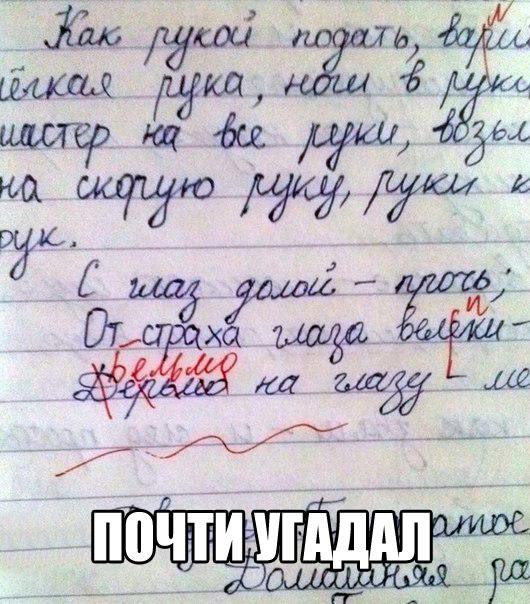 Как рукой подать,
лёгкая рука, ноги в руки
мастер на все руки,
на скорую руку, руки
рук.
С глаз долой – прочь;
От страха глаза велеки –
бельмо
Дерьмо на глазу –
ПОЧТИ УГАДАЛ
Домашняя